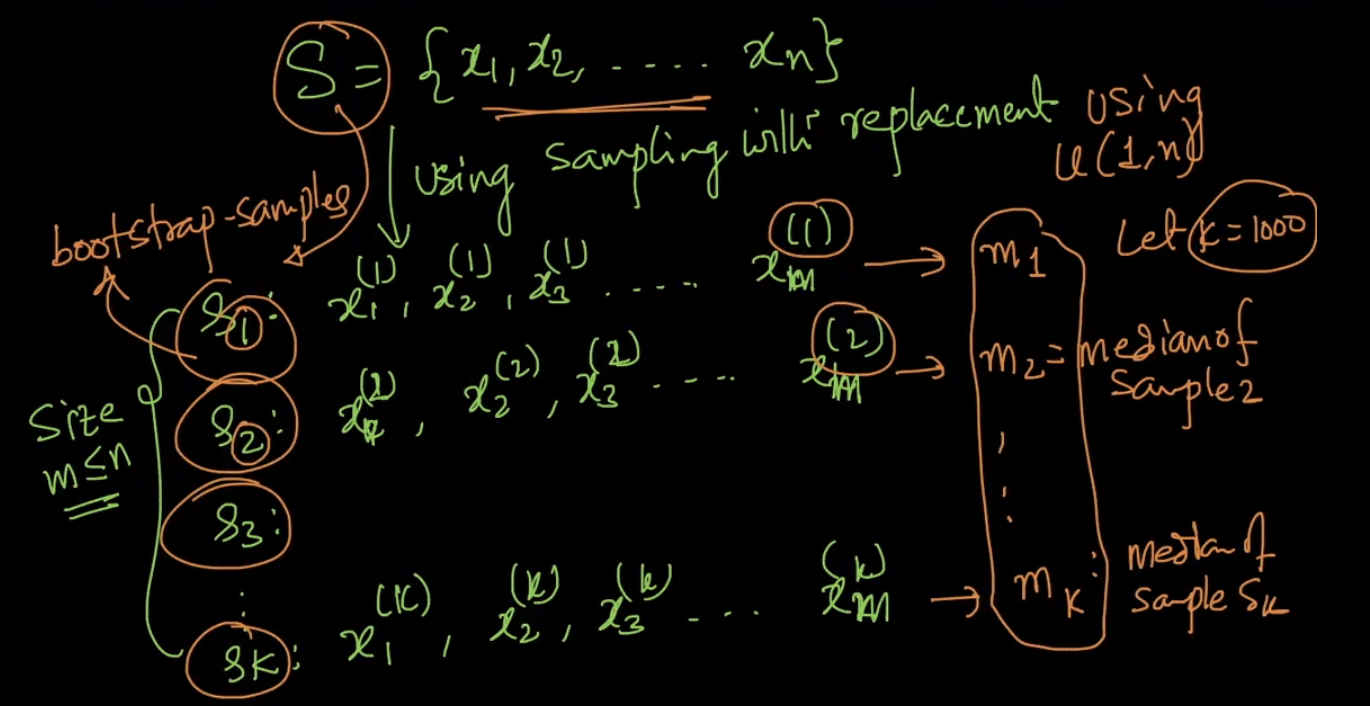 S = {x₁, x₂, ..... xn}
using sampling with replacement using
U(1,n)
bootstrap-samples
Let k = 1000
S₁: x₁⁽¹⁾, x₂⁽¹⁾, x₃⁽¹⁾ ..... xm⁽¹⁾ → m₁
S₂: x₁⁽²⁾, x₂⁽²⁾, x₃⁽²⁾ ..... xm⁽²⁾ → m₂ = median of
sample 2
Size
m ≤ n
S₃:
⋮
Sk: x₁⁽ᵏ⁾, x₂⁽ᵏ⁾, x₃⁽ᵏ⁾ .... xm⁽ᵏ⁾ → mk : median of
sample Sk